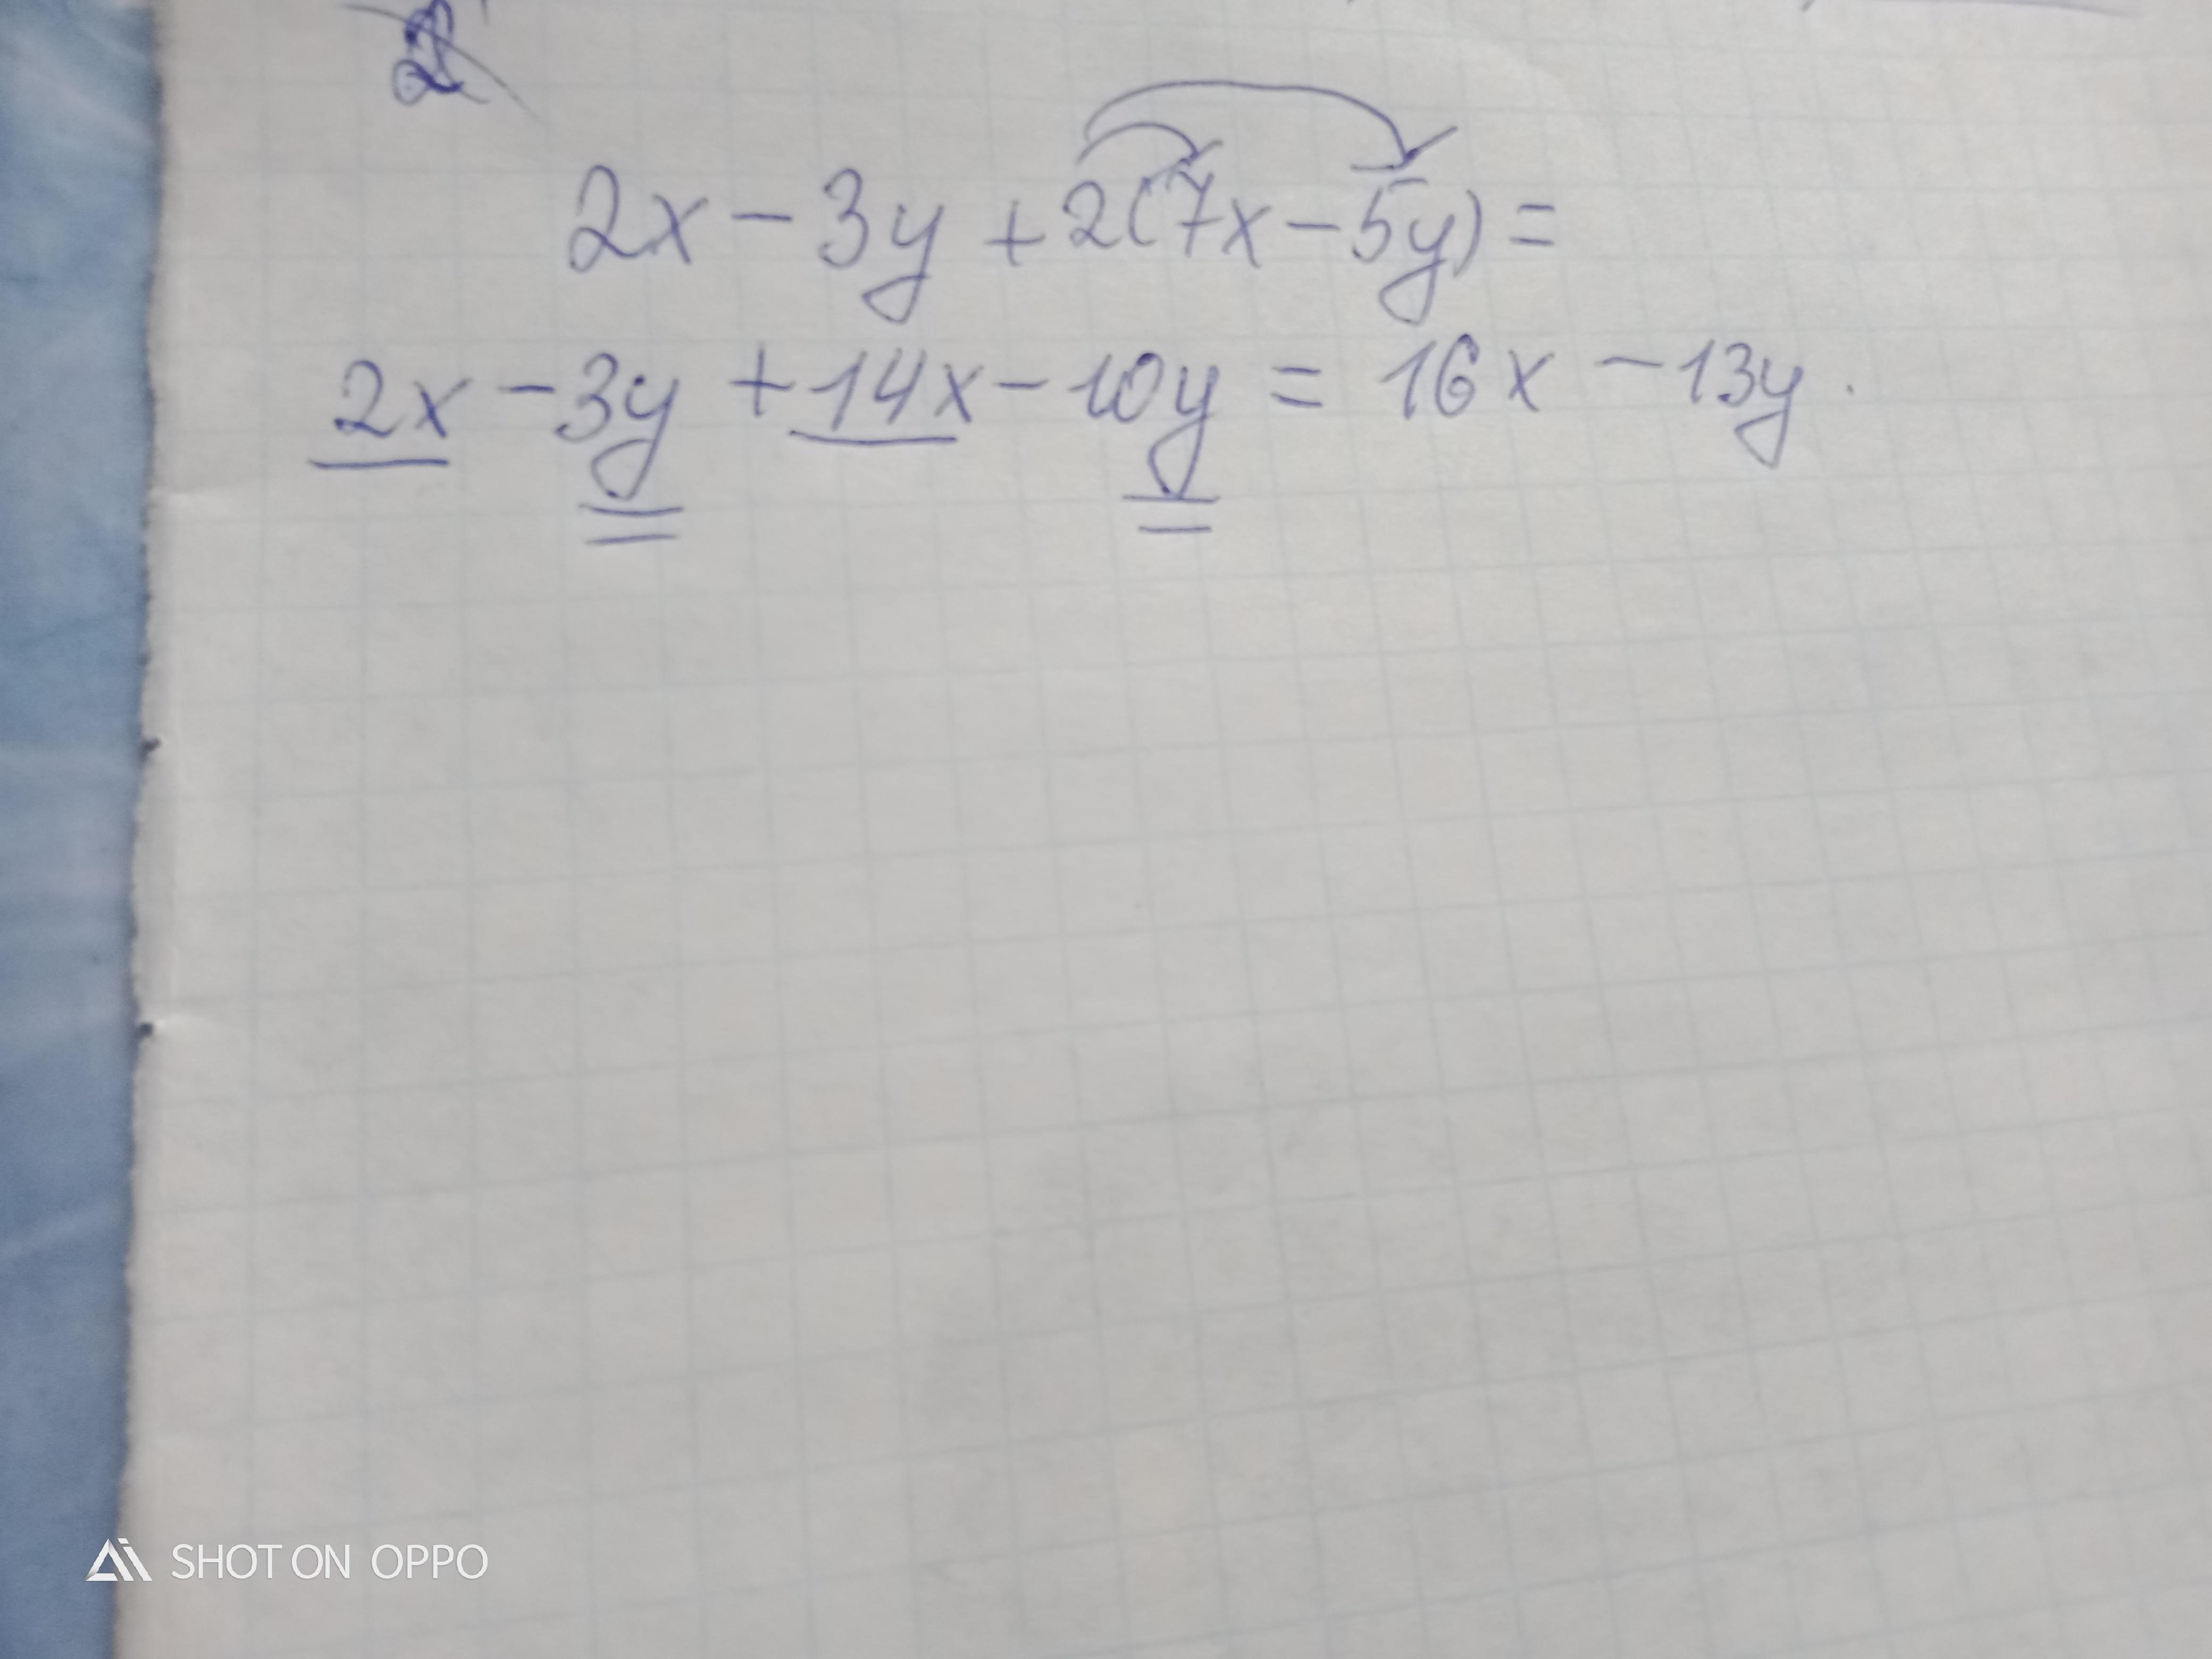 2x - 3y + 2(7x - 5y) =
2x - 3y + 14x - 10y = 16x - 13y.
SHOT ON OPPO